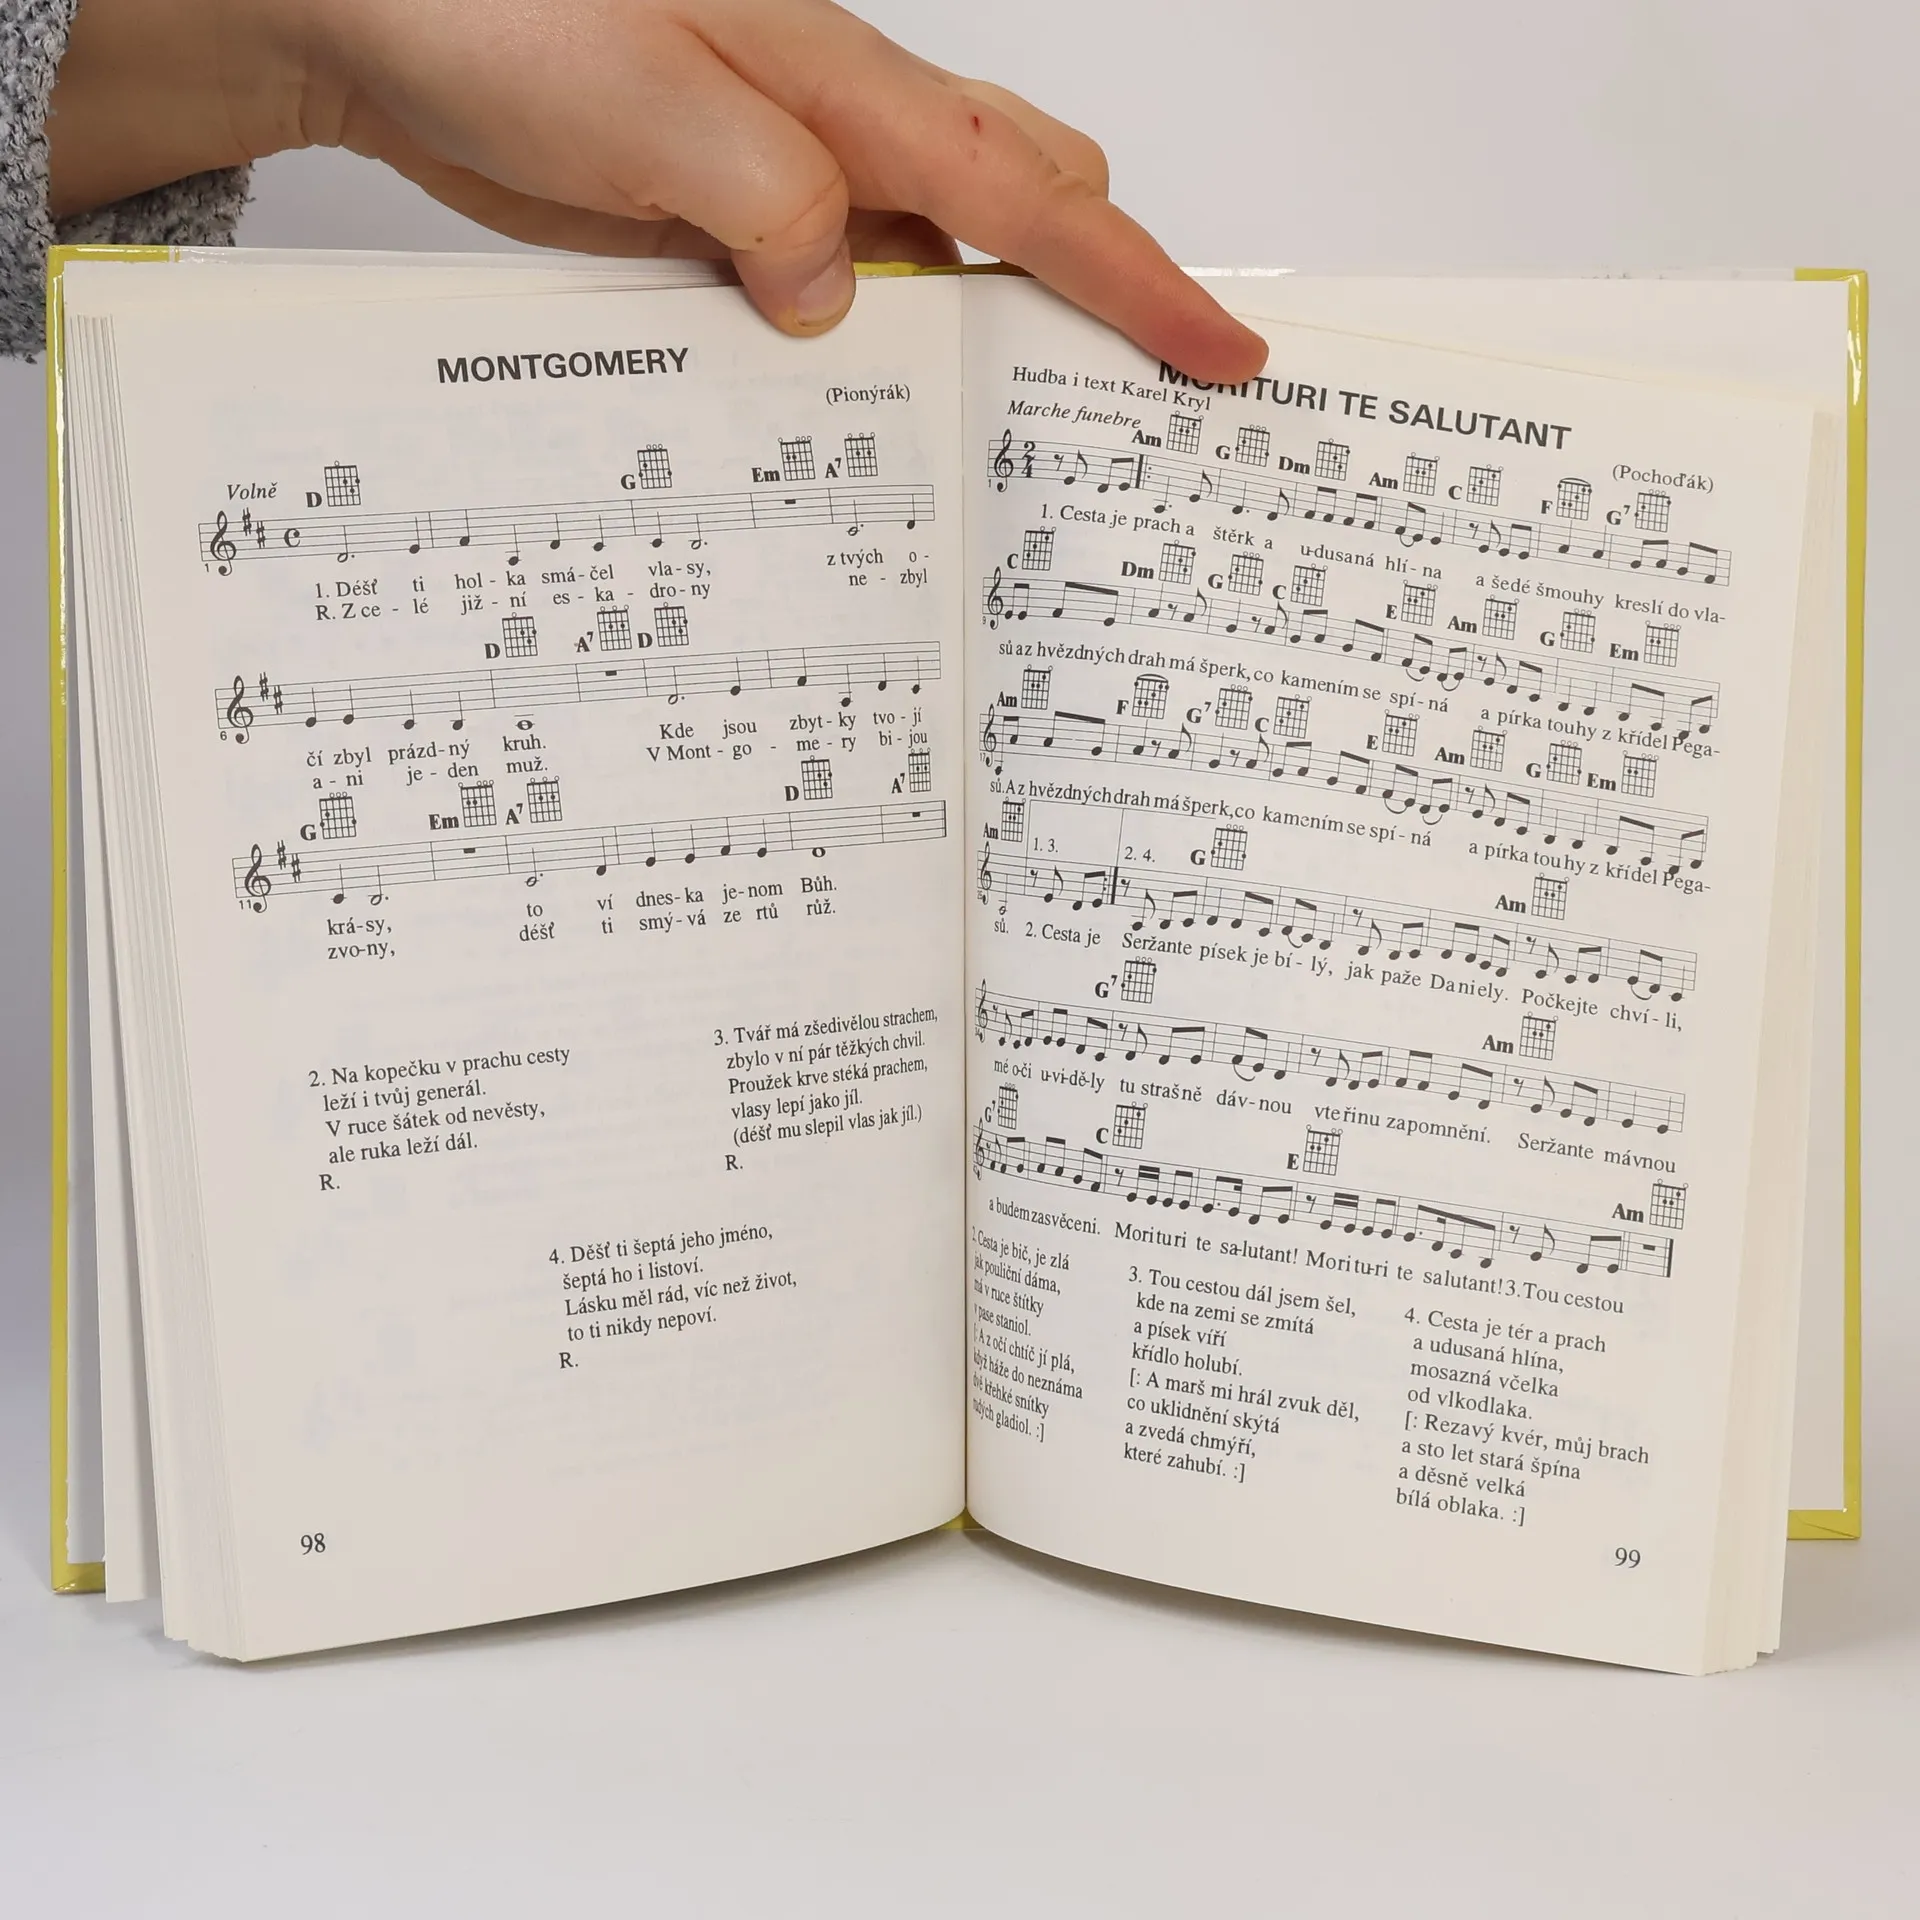 MONTGOMERY
(Pionýrák)
Volně
D G Em A7
1. Déšť ti hol - ka smá - čel vla - sy, z tvých o -
R. Z ce - lé již - ní es - ka - dro - ny ne - zbyl
D A7 D
6
čí zbyl prázd - ný kruh. Kde jsou zbyt - ky tvo - jí
a - ni je - den muž. V Mont - go - me - ry bi - jou
G Em A7 D A7
11
krá - sy, to ví dnes - ka je - nom Bůh.
zvo - ny, déšť ti smý - vá ze rtů růž.
2. Na kopečku v prachu cesty
leží i tvůj generál.
V ruce šátek od nevěsty,
ale ruka leží dál.
R.
3. Tvář má zšedivělou strachem,
zbylo v ní pár těžkých chvil.
Proužek krve stéká prachem,
vlasy lepí jako jíl.
(déšť mu slepil vlas jak jíl.)
R.
4. Děšť ti šeptá jeho jméno,
šeptá ho i listoví.
Lásku měl rád, víc než život,
to ti nikdy nepoví.
R.
98
MORITURI TE SALUTANT
Hudba i text Karel Kryl
(Pochoďák)
Marche funebre
Am G Dm Am C F G7
1. Cesta je prach a štěrk a u-dusaná hlí - na a šedé šmouhy kreslí do vla-
C Dm G C E Am G Em
sů a z hvězdných drah má šperk, co kamením se spí - ná a pírka touhy z křídel Pega-
Am F G7 C E Am G Em
sů. A z hvězdných drah má šperk, co kamením se spí - ná a pírka touhy z křídel Pega-
Am 1. 3. 2. 4. G Am
sů. 2. Cesta je Seržante písek je bí - lý, jak paže Daniely. Počkejte chví - li,
G7 Am
mé o-či u-vi-dě-ly tu strašně dáv - nou vteřinu zapomnění. Seržante mávnou
G7 C E Am
a budem zasvěceni. Morituri te sa-lutant! Moritu-ri te salutant! 3. Tou cestou
2. Cesta je bič, je zlá
jak pouliční dáma,
má v ruce štítky
v pase staniol.
[: A z očí chtíč jí plá,
když háže do neznáma
dvě křehké snítky
rudých gladiol. :]
3. Tou cestou dál jsem šel,
kde na zemi se zmítá
a písek víří
křídlo holubí.
[: A marš mi hrál zvuk děl,
co uklidnění skýtá
a zvedá chmýří,
které zahubí. :]
4. Cesta je tér a prach
a udusaná hlína,
mosazná včelka
od vlkodlaka.
[: Rezavý kvér, můj brach
a sto let stará špína
a děsně velká
bílá oblaka. :]
99